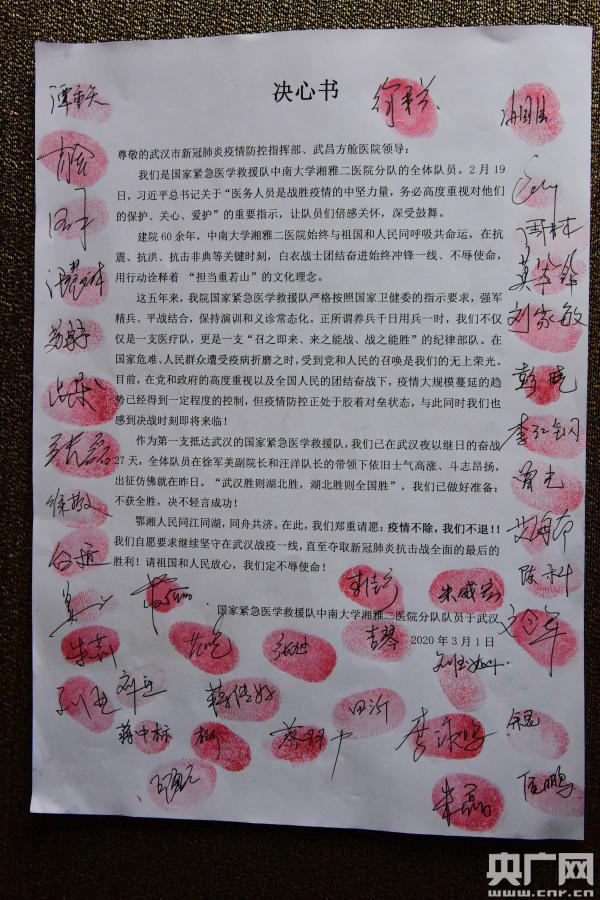 决心书
尊敬的武汉市新冠肺炎疫情防控指挥部、武昌方舱医院领导:
我们是国家紧急医学救援队中南大学湘雅二医院分队的全体队员。2 月 19
日,习近平总书记关于“医务人员是战胜疫情的中坚力量,务必高度重视对他们
的保护、关心、爱护”的重要指示,让队员们倍感关怀,深受鼓舞。
建院 60 余年,中南大学湘雅二医院始终与祖国和人民同呼吸共命运,在抗
震、抗洪、抗击非典等关键时刻,白衣战士团结奋进始终冲锋一线、不辱使命,
用行动诠释着 “担当重若山”的文化理念。
这五年来,我院国家紧急医学救援队严格按照国家卫健委的指示要求,强军
精兵、平战结合,保持演训和义诊常态化。正所谓养兵千日用兵一时,我们不仅
仅是一支医疗队,更是一支“召之即来、来之能战、战之能胜”的纪律部队。在
国家危难、人民群众遭受疫病折磨之时,受到党和人民的召唤是我们的无上荣光。
目前,在党和政府的高度重视以及全国人民的团结奋战下,疫情大规模蔓延的趋
势已经得到一定程度的控制,但疫情防控正处于胶着对垒状态,与此同时我们也
感到决战时刻即将来临!
作为第一支抵达武汉的国家紧急医学救援队,我们已在武汉夜以继日的奋战
27 天,全体队员在徐军美副院长和汪洋队长的带领下依旧士气高涨、斗志昂扬,
出征仿佛就在昨日。“武汉胜则湖北胜,湖北胜则全国胜”,我们已做好准备:
不获全胜,决不轻言成功!
鄂湘人民同江同湖,同舟共济。在此,我们郑重请愿:疫情不除,我们不退!!
我们自愿要求继续坚守在武汉战疫一线,直至夺取新冠肺炎抗击战全面的最后的
胜利!请祖国和人民放心,我们定不辱使命!
国家紧急医学救援队中南大学湘雅二医院分队队员于武汉
2020 年 3 月 1 日
刘家敏
彭晓
李红钢
曾光
陈永科
徐敏
朱威宏
吉琴
田沂
蒋中标
朱磊
伍鹏
央广网
www.cnr.cn